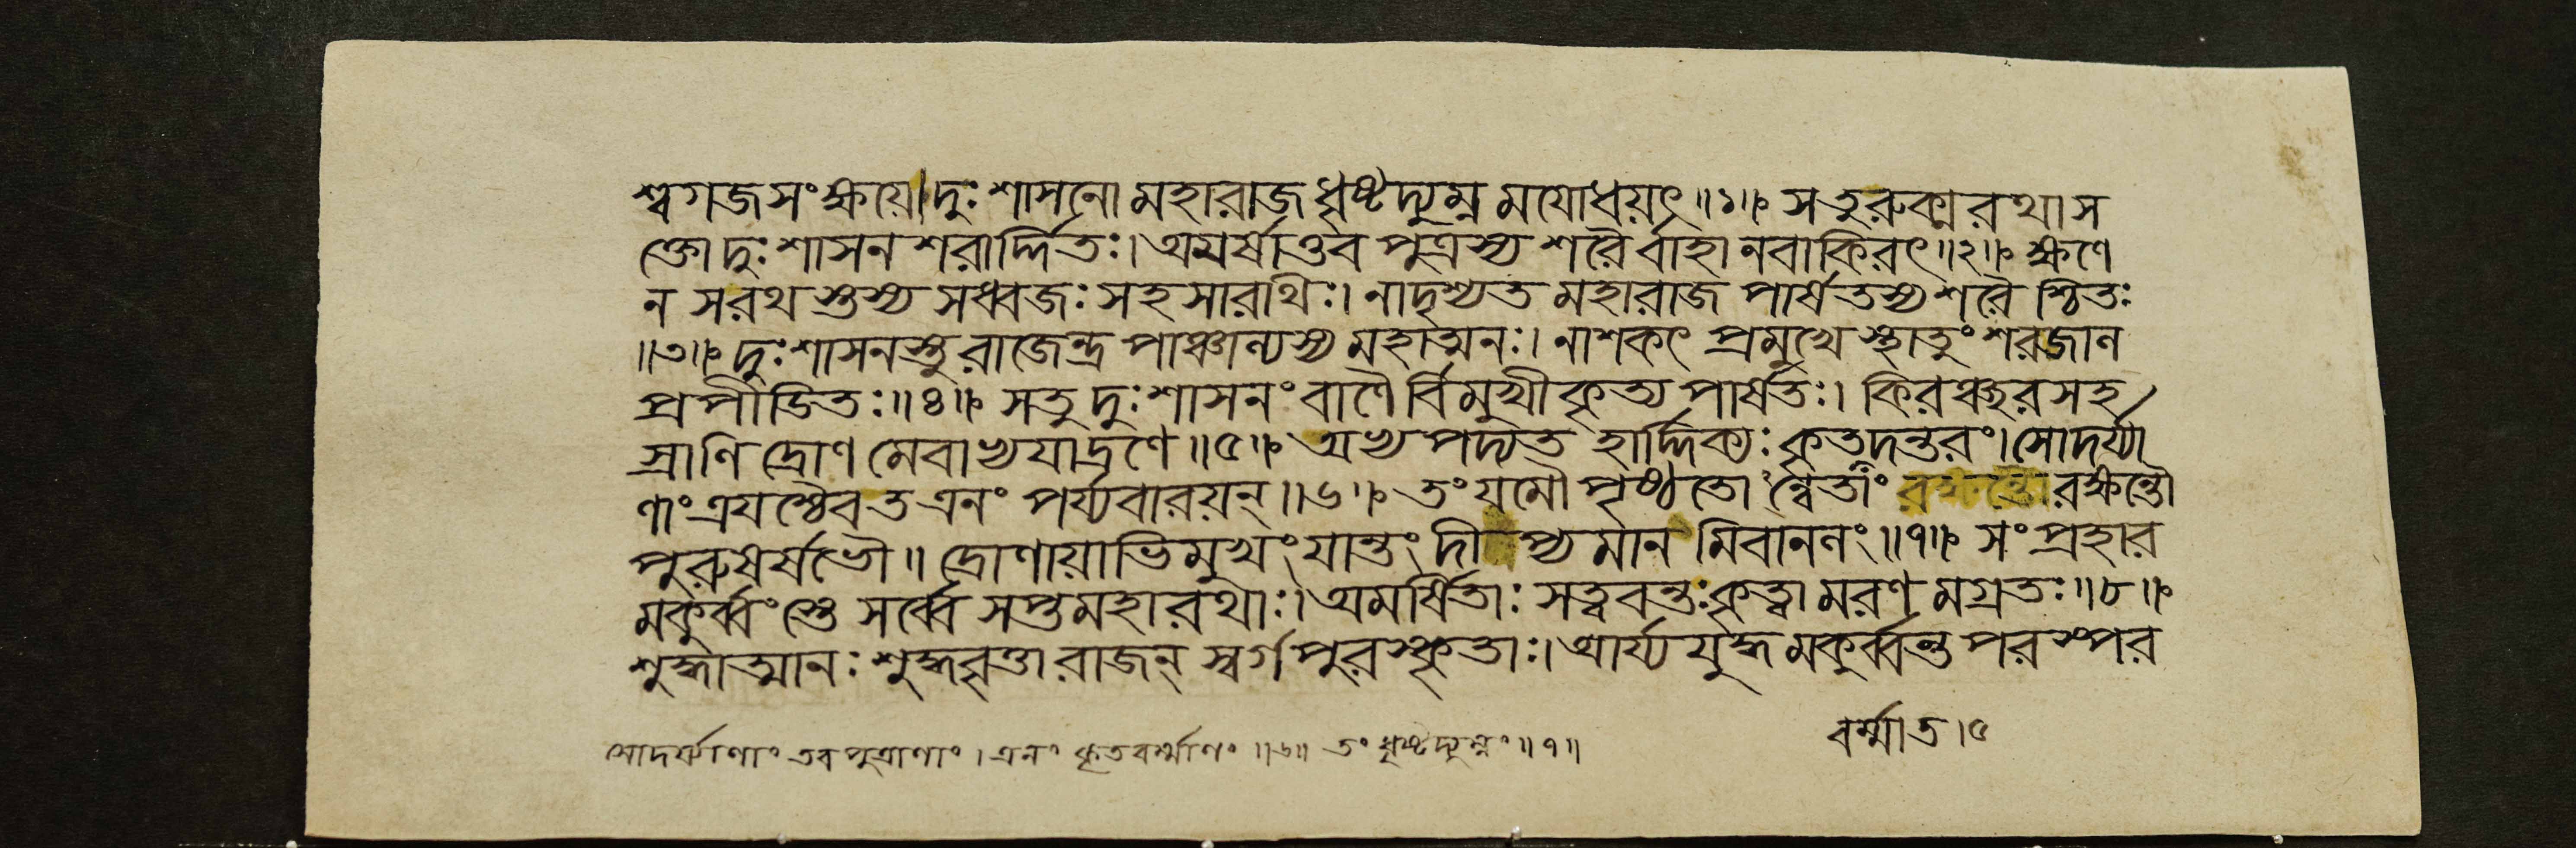 শ্বগজসংক্ষয়ে।দুঃশাসনো মহারাজ ধৃষ্টদ্যুম্ন মযোধয়ৎ॥১॥ সতুরুক্মরথাস
ক্তো দুঃশাসন শরার্দ্দিতঃ। অমর্ষাত্তব পুত্রস্য শরৈর্বাহানবাকিরৎ॥২॥ ক্ষণে
ন সরথ স্তস্য সধ্বজঃ সহ সারথিঃ। নাদৃশ্যত মহারাজ পার্ষতস্য শরৈ শ্চিতঃ
॥৩॥ দুঃশাসনস্তু রাজেন্দ্র পাঞ্চাল্যস্য মহাত্মনঃ। নাশকৎ প্রমুখে স্থাতুং শরজাল
প্রপীডিতঃ॥৪॥ সতু দুঃশাসনং বাণৈর্বিমুখীকৃত্য পার্ষতঃ। কিরঞ্ছরসহ
স্রাণি দ্রোণ মেবাভ্যযাদ্রণে॥৫॥ অভ্যপদ্যত হার্দ্দিক্যঃ কৃতবদন্তরং। সোদর্য্যা
ণাং ত্রযশ্চৈব ত এনং পর্য্যবারয়ন্॥৬॥ তং যমৌ পৃষ্ঠতো ন্বৈতাং রক্ষন্তৌ
পুরুষর্ষভৌ॥ দ্রোণায়াভিমুখং যান্তং দীপ্যমান মিবাননং॥৭॥ সংপ্রহার
মকুর্ব্বংস্তে সর্ব্বে সপ্তমহারথাঃ। অমর্ষিতাঃ সত্ববন্তঃ কৃত্বা মরণ মগ্রতঃ॥৮॥
শুদ্ধাত্মানঃ শুদ্ধবৃত্তা রাজন্ স্বর্গপুরস্কৃতাঃ। আর্য্য যুদ্ধ মকুর্ব্বন্ত পরস্পর
বর্ম্মাত।৫
সোদর্য্যাণাং তব পুত্রাণাং। এনং কৃতবর্ম্মাণং॥৬॥ তং ধৃষ্টদ্যুম্নং॥৭॥